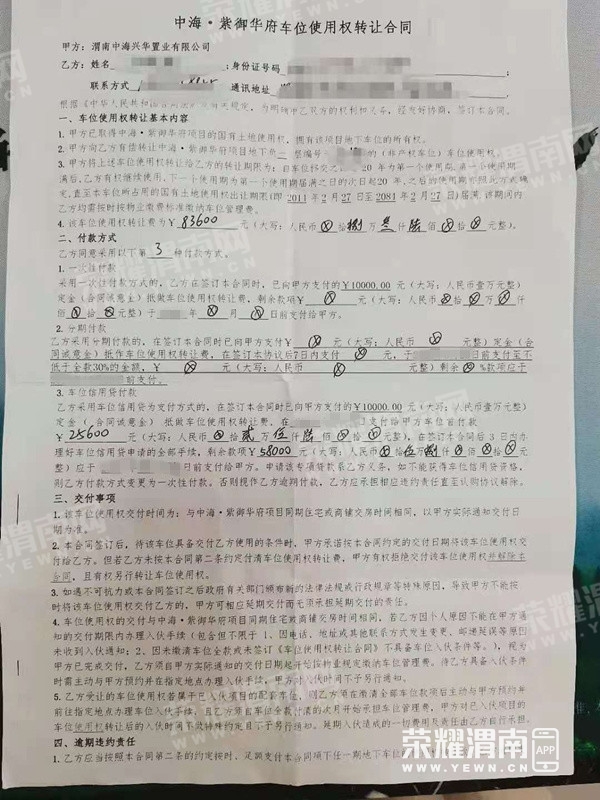 中海·紫御华府车位使用权转让合同
甲方：渭南中海兴华置业有限公司
乙方：姓名 ；身份证号码
联系方式 通讯地址
一、车位使用权转让基本内容
1.甲方已取得中海·紫御华府项目的国有土地使用权，拥有该项目地下车位的所有权。
2.甲方向乙方有偿转让中海·紫御华府项目地下负一整编号 的（非产权车位）车位使用权。
3.甲方将上述车位使用权转让给乙方的转让期限为：自车位移交之 20年为第一个使用期，第一个使用期
满后，乙方有权继续使用，下一个使用期为第一个使用期届满之日的次日起20年，之后的使用期亦照此方式确
定，直至本车位所占用的国有土地使用权出让期限（即2011年2月27日至2081年2月27日）届满，
乙方均需按时按物业缴费标准缴纳车位管理费。
4.该车位使用权转让费为￥83600元（大写：人民币⊗拾捌万叁仟陆佰⊗拾⊗元整）。
二、付款方式
乙方同意采用以下第3种付款方式。
1.一次性付款
采用一次性付款方式的，乙方在签订本合同时，已向甲方支付的￥10000.00元（大写：人民币壹万元整）
定金（合同诚意金）抵做车位使用权转让费，剩余款项￥⊗元（大写：人民币⊗拾⊗万⊗仟
佰⊗拾⊗元整）于 年 月⊗日前支付给甲方。
2.分期付款
乙方采用分期付款的，在签订本合同时已向甲方支付￥⊗元（大写：人民币⊗元整）定金（合
同诚意金）抵作车位使用权转让费，在签订本协议后7日内支付⊗元，于 日前支付至不
低于全款30%的金额，￥⊗元（大写：人民币⊗元整）剩余⊗%款项应于
前支付。
3.车位信用贷付款
乙方采用车位信用贷为支付方式的，在签订本合同时已向甲方支付的￥10000.00元（大写：人民币壹万元整）
定金（合同诚意金）抵做车位使用权转让费，在 支付给甲方车位首付款
￥25600元（大写：人民币⊗拾贰万伍仟陆佰⊗拾⊗元整），在签订本合同后3日内办
理好车位信用贷申请的全部手续，剩余款项￥58000元（大写：人民币⊗拾伍万捌仟⊗佰⊗拾⊗元
整）应于 日前支付给甲方。申请该专项贷款系乙方义务，如不能获得车位信用贷资格，
则乙方付款方式变更为一次性付款。否则视作乙方逾期付款，乙方应承担相应违约责任直至认购协议解除。
三、交付事项
1.该车位使用权交付时间为：与中海·紫御华府项目同期住宅或商铺交房时间相同，以甲方实际通知交付日
期为准。
2.本合同签订后，待该车位具备交付乙方使用的条件时，甲方承诺按本合同约定的交付日期将该车位使用权交
付给乙方。但若乙方未按本合同第二条约定付清车位使用权转让费，甲方有权拒绝交付该车位使用权并解除本
合同，且有权另行转让车位使用权。
3.如遇不可抗力或本合同签订之后政府有关部门颁布新的法律法规或行政规章等特殊原因，导致甲方不能按
时将该车位使用权交付乙方的，甲方可相应延期交付而无须承担延期交付的责任。
4.车位使用权的交付与中海·紫御华府项目同期住宅或商铺交房时间相同，若乙方因个人原因不能在甲方通
知的交付期限内办理入伏手续（包含但不限于1、因电话、地址或其他联系方式发生变更，邮递延误等原因
未收到入伏通知；2、因未缴清车位全款或未签订《车位使用权转让合同》不具备车位入伏条件等。），视为
甲方已完成交付，乙方须自甲方实际通知的交付日期起开始按物业规定缴纳车位管理费。待乙方具备入伏条件
时需主动与甲方预约并在指定地点办理入伏手续，甲方对入伏时间不予另行通知。
5.乙方受让的车位使用权若属于已入伏项目的配套车位，则乙方须在缴清全部车位款项后主动与甲方预约并
前往指定地点办理车位入伏手续，且乙方须自车位全款付清的次月开始承担车位管理费，甲方对已入伏项目的
车位使用权转让后的入伏时间不做特殊约定且不予另行通知。延期入伏造成的一切费用及责任由乙方自行承担。
四、逾期违约责任
1.乙方应当按照本合同第二条的约定按时、足额支付本合同项下任一期地下车位
荣耀渭南网
荣耀渭南 APP
WWW.YEWN.CN